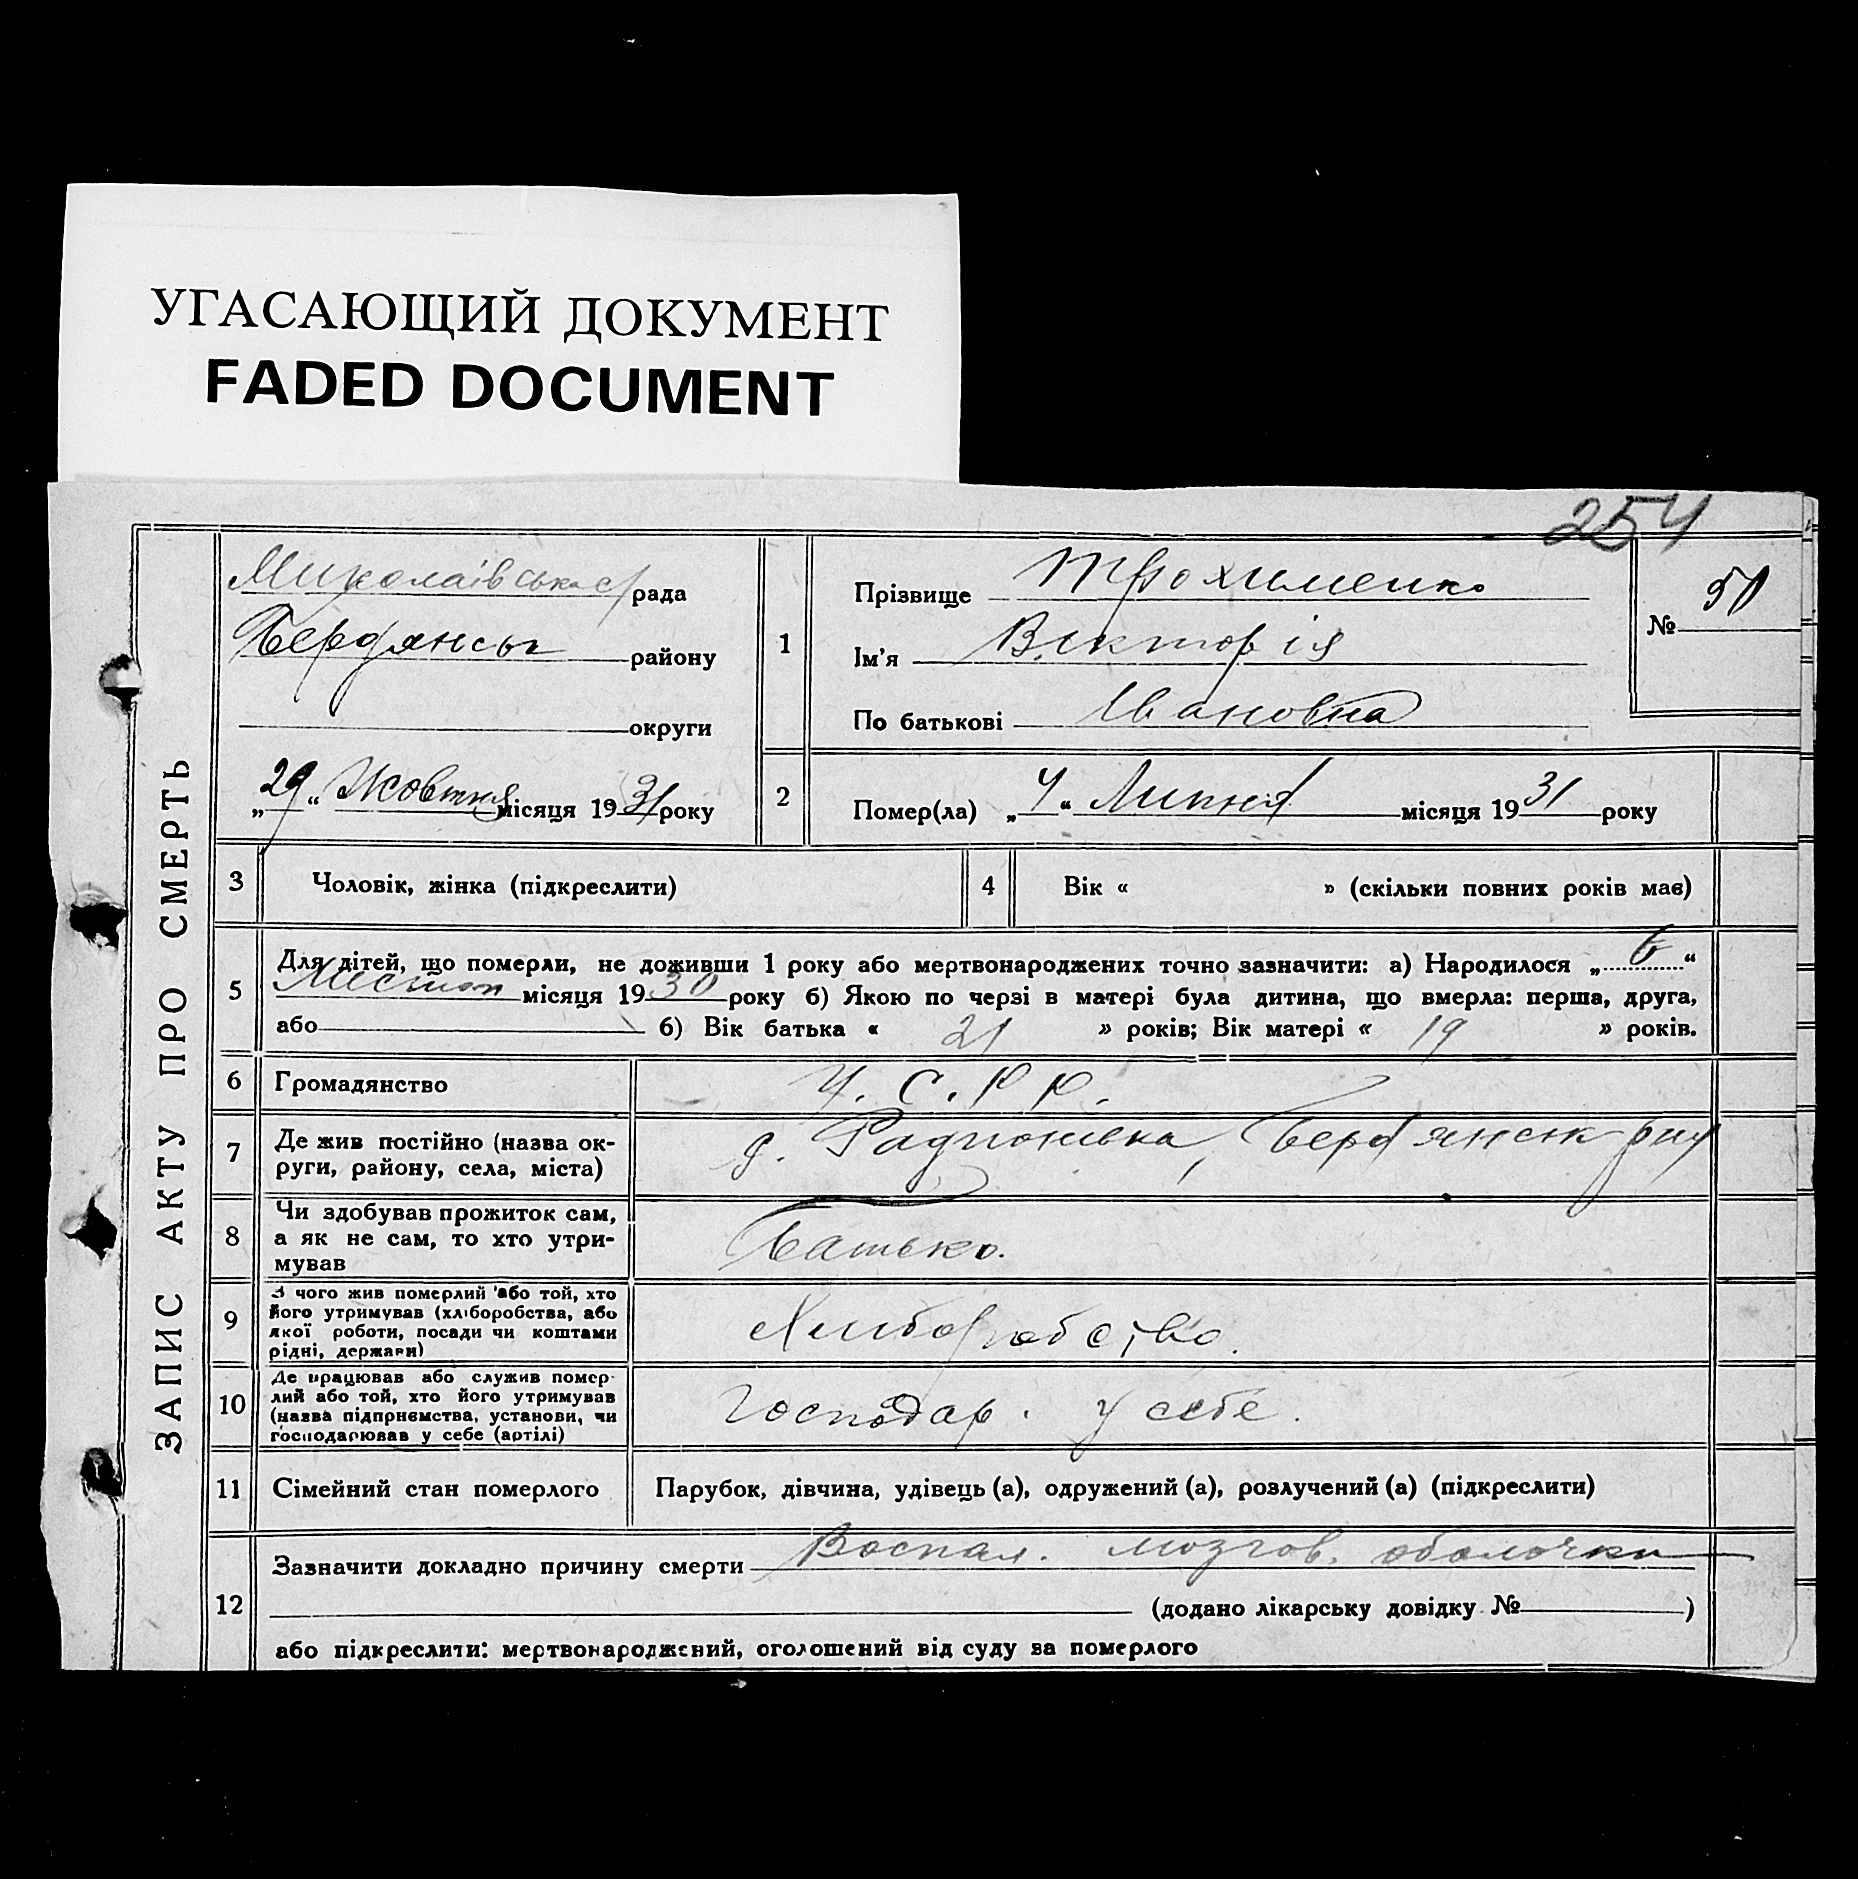 УГАСАЮЩИЙ ДОКУМЕНТ
FADED DOCUMENT
254
ЗАПИС АКТУ ПРО СМЕРТЬ
Миколаівська с/рада
Бердянськ району
округи
„29“ Жовтня місяця 1931 року
1
Прізвище Трохименко
Ім'я Вікторія
По батькові Івановна
№ 50
2
Помер(ла) „4“ Липня місяця 1931 року
3 Чоловік, жінка (підкреслити)
4 Вік « » (скільки повних років має)
5 Для дітей, що померли, не доживши 1 року або мертвонароджених точно зазначити: а) Народилося „6“
місяця 1930 року б) Якою по черзі в матері була дитина, що вмерла: перша, друга,
або б) Вік батька « 21 » років; Вік матері « 19 » років.
6 Громадянство У.С.Р.Р.
7 Де жив постійно (назва ок-
руги, району, села, міста)
Бердянськ
8 Чи здобував прожиток сам,
а як не сам, то хто утри-
мував
Батько.
9 З чого жив померлий або той, хто
його утримував (хліборобства, або
якої роботи, посади чи коштами
рідні, держави)
Хлиборобство.
10 Де працював або служив помер-
лий або той, хто його утримував
(назва підприємства, установи, чи
господарював у себе (артілі)
Господар. у себе.
11 Сімейний стан померлого Парубок, дівчина, удівець (а), одружений (а), розлучений (а) (підкреслити)
12 Зазначити докладно причину смерти Воспал. мозгов. оболочки
(додано лікарську довідку № )
або підкреслити: мертвонароджений, оголошений від суду за померлого